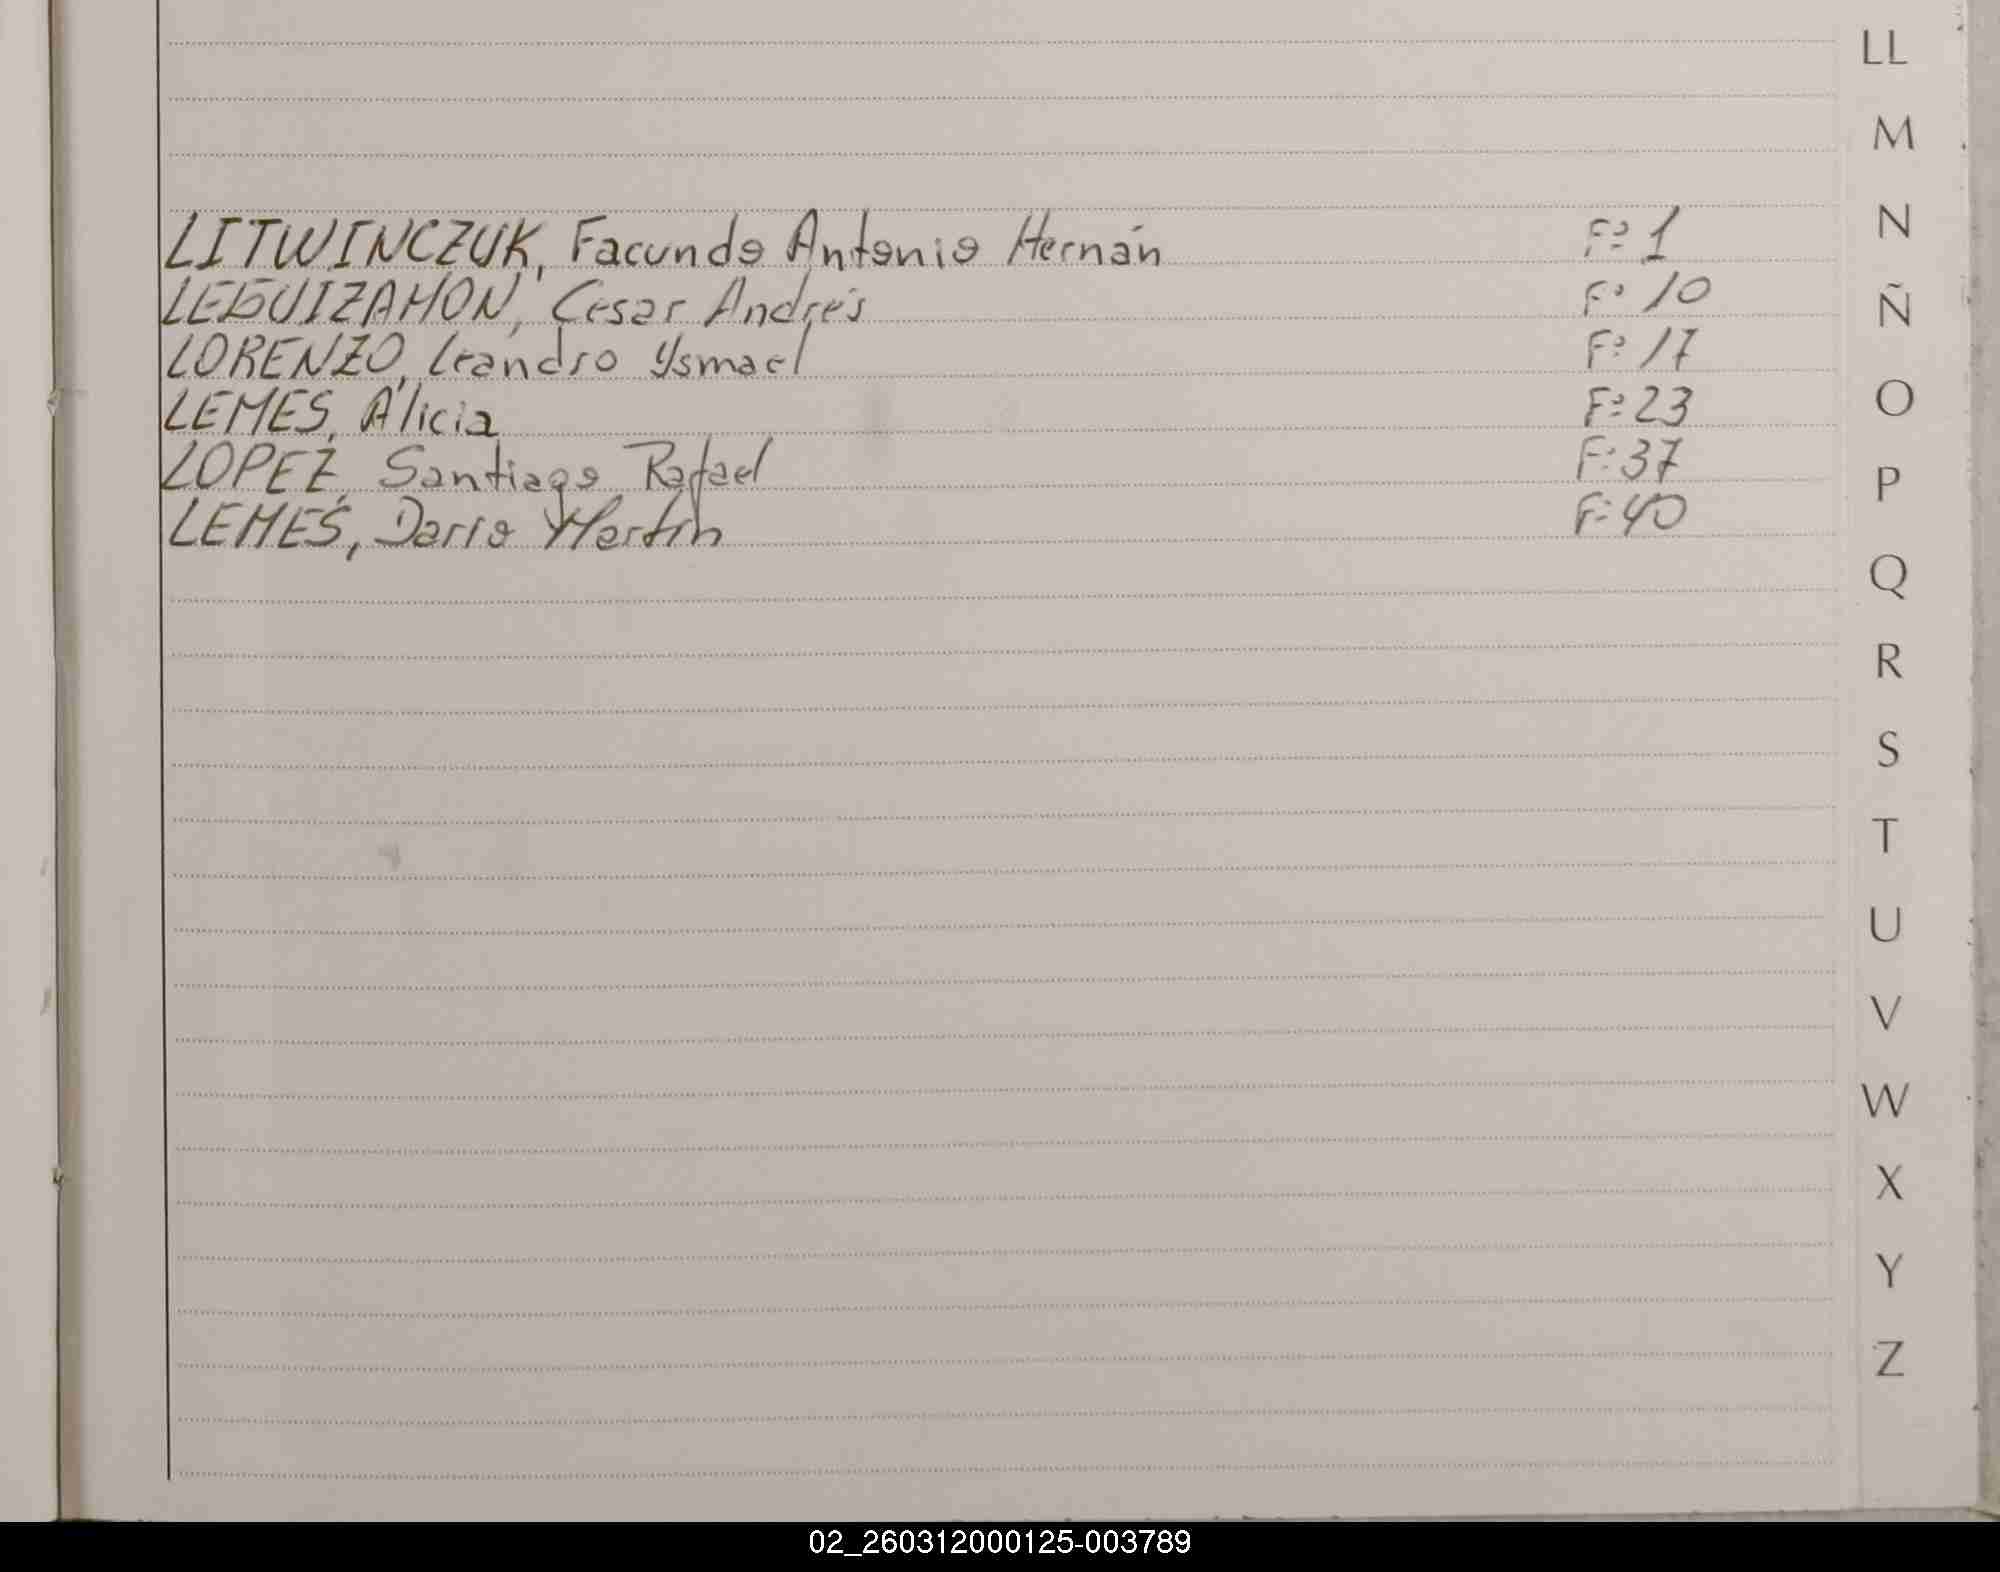 LITWINCZUK, Facundo Antonio Hernán Fº 1
LEGUIZAMON, Cesar Andrés Fº 10
LORENZO, Leandro Ysmael Fº 17
LEMES, Alicia Fº 23
LOPEZ, Santiago Rafael Fº 37
LEMES, Dario Martín Fº 40
LL
M
N
Ñ
O
P
Q
R
S
T
U
V
W
X
Y
Z
02_260312000125-003789